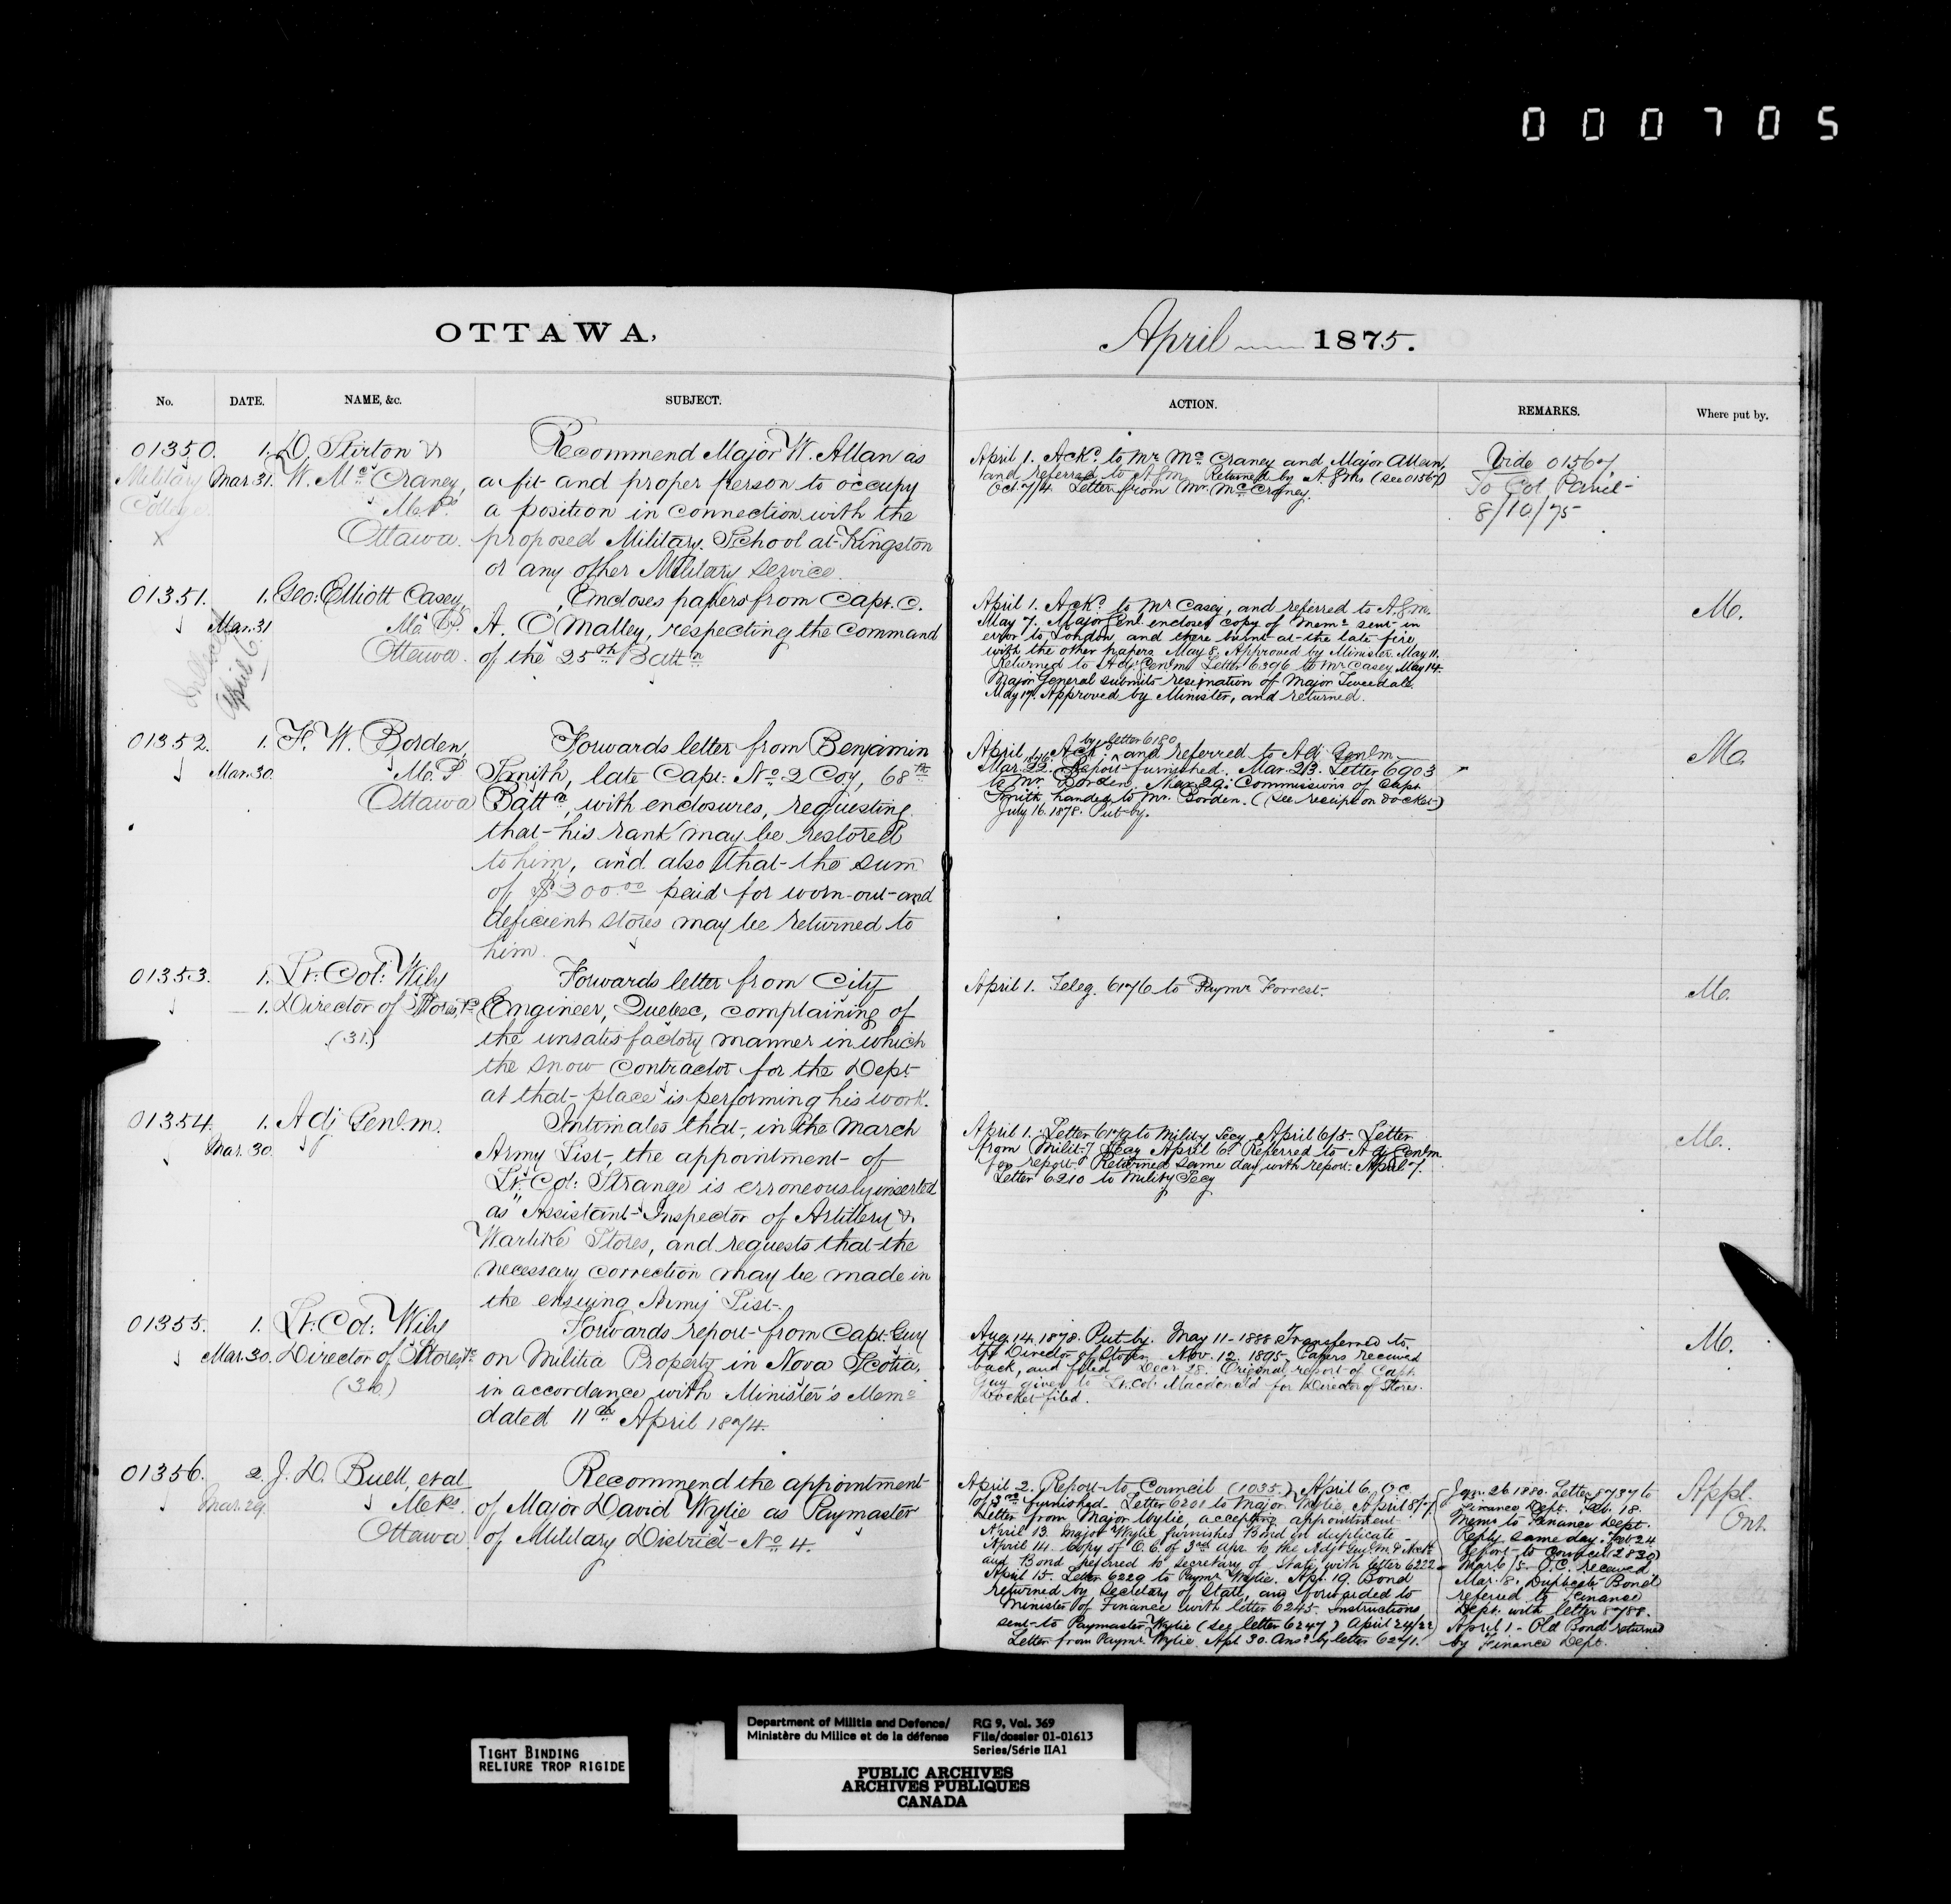 000705
OTTAWA,
April 1875.
No.
DATE.
NAME, &c.
SUBJECT.
ACTION.
REMARKS.
Where put by.
01350.
Military
College
X
1.
Mar. 31.
D. Stirton &
W. McCraney,
M.Ps
Ottawa.
Recommend Major W. Allan as
a fit and proper person to occupy
a position in connection with the
proposed Military School at Kingston
or any other Military service.
April 1. Ackd. to Mr. McCraney and Major Allan,
and referred to A.G.M. Returned by A.G.M. (see 01567)
Oct. 7/4. Letter from Mr. McCraney.
Vide 01567.
To Col. Panet
8/10/75
01351.
1.
Mar. 31
April 6.
Geo: Elliott Casey,
M.P.
Ottawa.
Encloses papers from Capt. C.
A. O'Malley, respecting the command
of the 25th Battn.
April 1. Ackd. to Mr Casey, and referred to A.G.M.
May 7. Major Genl. encloses copy of Memo sent in
error to London, and there burnt at the late fire,
with the other papers. May 8. Approved by Minister. May 11.
Returned to Adj. Genl.m. Letter 6396 to Mr Casey May 14.
Major General submits resignation of Major Tweedale.
May 17. Approved by Minister, and returned.
M.
01352.
1.
Mar. 30.
F. W. Borden,
M.P
Ottawa
Forwards letter from Benjamin
Smith, late Capt. No. 2 Coy, 68th
Battn, with enclosures, requesting
that his rank may be restored
to him, and also that the sum
of $200.00 paid for worn-out and
deficient stores may be returned to
him.
by letter 6180
April 1. Ackd. and referred to Adj. Genl.m.
Mar. 22. Report furnished. Mar. 23. Letter 6903
to Mr. Borden. Mar. 29. Commissions of Capt.
Smith handed to Mr. Borden. (See receipt on docket)
July 16. 1878. Put by.
M.
01353.
1.
1.
Lt: Col: Wily
Director of Stores, &c
(31)
Forwards letter from City
Engineer, Quebec, complaining of
the unsatisfactory manner in which
the snow contractor for the Dept.
at that place is performing his work.
April 1. Teleg. 6176 to Paymr Forrest.
M.
01354.
1.
Mar. 30.
Adj Genl.m.
Intimates that, in the March
Army List, the appointment of
Lt: Col: Strange is erroneously inserted
as "Assistant Inspector of Artillery &
Warlike Stores, and requests that the
necessary correction may be made in
the ensuing Army List.
April 1. Letter 6179 to Mility Secy. April 6/5. Letter
from Milit.y Secy April 6. Referred to Adj Genlm
for report. Returned same day with report. April 7.
Letter 6210 to Milit.y Secy
M.
01355.
1.
Mar. 30.
Lt: Col: Wily
Director of Stores, &c
(30.)
Forwards report from Capt. Guy
on Militia Property in Nova Scotia,
in accordance with Minister's Memo
dated 11th April 1874.
Aug. 14. 1878. Put by. May 11 - 1888 Transferred to
the Director of Stores. Nov. 12. 1895. Papers received
back, and filed. Decr. 28. Original report of Capt.
Guy given to Lt. Col. Macdonald for Director of Stores.
Docket filed.
M.
01356.
2.
Mar. 29.
J. D. Buell, et al
M.Ps.
Ottawa
Recommend the appointment
of Major David Wylie as Paymaster
of Military District No. 4.
April 2. Report to Council (1035.) April 6. O.C.
of 3rd furnished. Letter 6201 to Major Wylie. April 8/7.
Letter from Major Wylie, accepting appointment.
April 13. Major Wylie furnishes Bond in duplicate.
April 14. Copy of O.C. of 3rd Apr. to the Adjt Genl. M. &
and Bond referred to Secretary of State with letter 6222
April 15. Letter 6229 to Paymr Wylie. Apr. 19. Bond
returned by Secretary of State, and forwarded to
Minister of Finance with letter 6245. Instructions
sent to Paymaster Wylie (see letter 6247) April 24/22
Letter from Paymr. Wylie. Apl. 30. Ansd. by letter 6271.
Jan. 26 1880. Letter 8737 to
Finance Dept. Feb. 18.
Memo to Finance Dept.
Reply same day. Feb 24
Report to Council (2830)
Mar. 6/5 - O.C. received
Mar. 8. Duplicate Bond
referred to Finance
Dept. with letter 8788.
April 1 - Old Bond returned
by Finance Dept.
Appt.
Ont.
TIGHT BINDING
RELIURE TROP RIGIDE
Department of Militia and Defence/
Ministère du Milice et de la défense
RG 9, Vol. 369
File/dossier 01-01613
Series/Série IIA1
PUBLIC ARCHIVES
ARCHIVES PUBLIQUES
CANADA